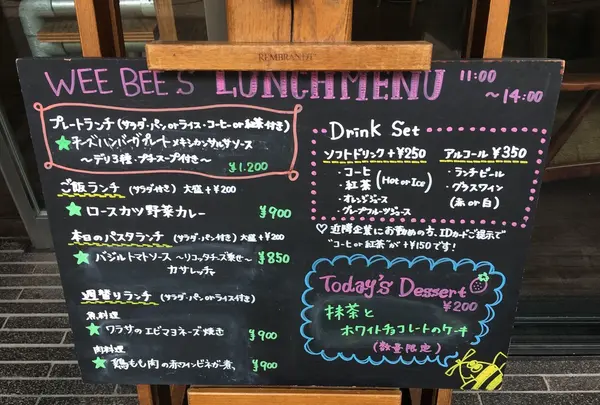 REMBRANDT
WEE BEE'S LUNCH MENU 11:00
～14:00
プレートランチ (サラダ・パン or ライス・コーヒー or 紅茶付き)
★チーズハンバーグプレート メキシカンサルサソース
～デリ3種・プチスープ付き～ ¥1.200
ご飯ランチ (サラダ付き) 大盛+¥200
★ロースカツ野菜カレー ¥900
本日のパスタランチ (サラダ・パン付き) 大盛+¥200
★バジルトマトソース ～リコッタチーズ乗せ～ ¥850
カサレッチェ
週替りランチ (サラダ・パン or ライス付き)
魚料理
★ワラサのエビマヨネーズ焼き ¥900
肉料理
★鶏もも肉の赤ワインビネガー煮 ¥900
Drink Set
ソフトドリンク+¥250
・コーヒー
・紅茶 (Hot or Ice)
・オレンジジュース
・グレープフルーツジュース
アルコール ¥350
・ランチビール
・グラスワイン
(赤 or 白)
♡近隣企業にお勤めの方、IDカードご提示で
"コーヒー or 紅茶"が+¥150です!
Today's Dessert
¥200
抹茶と
ホワイトチョコレートのケーキ
(数量限定)